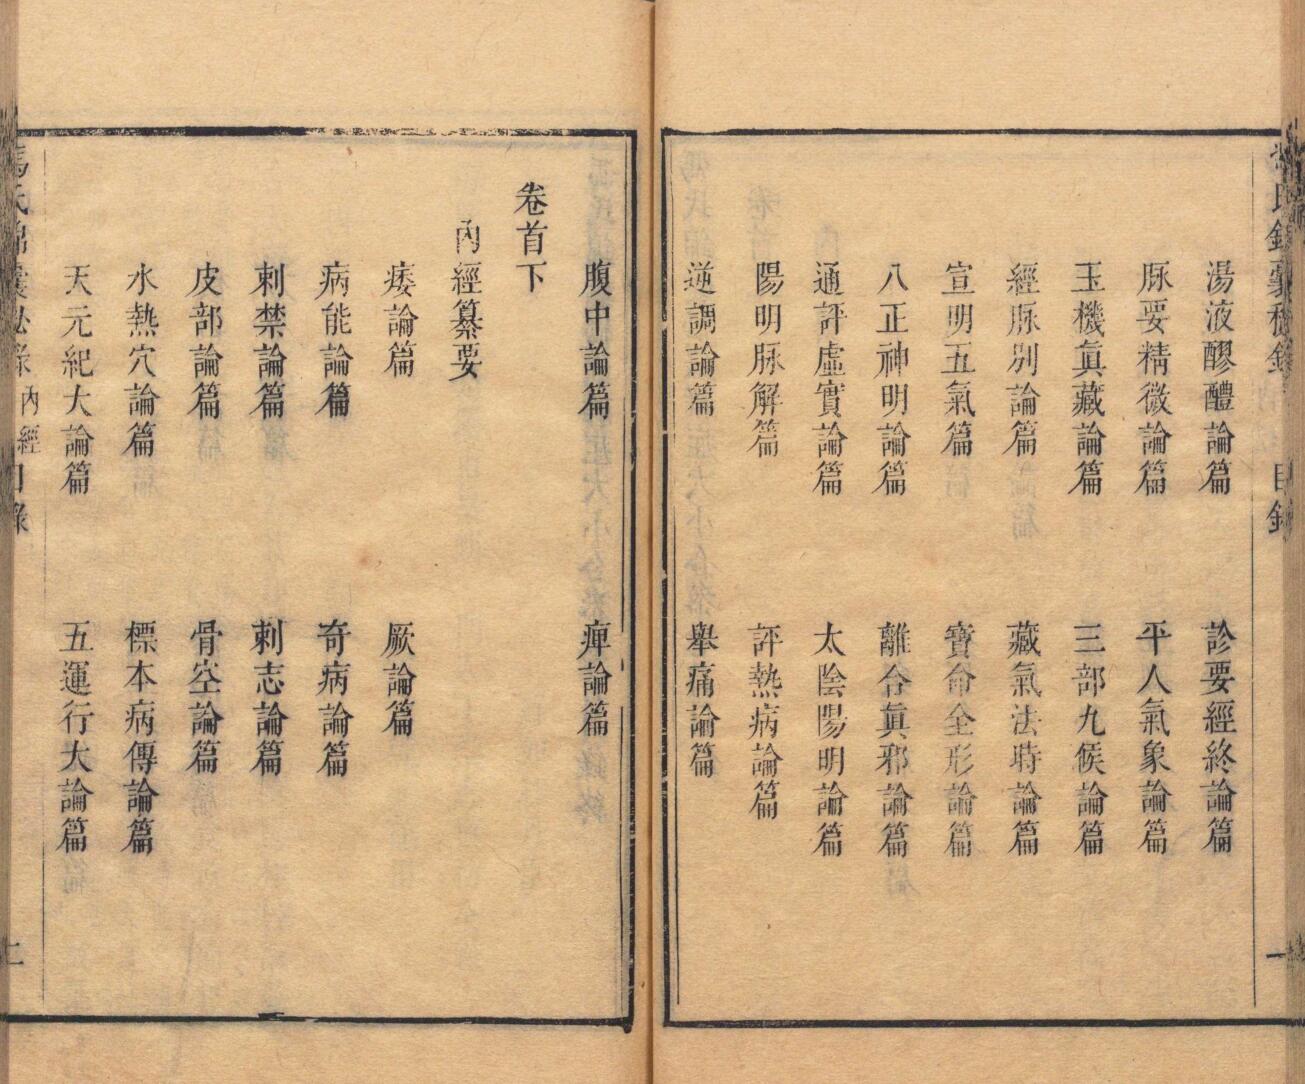 湯液醪醴論篇　診要經終論篇
脉要精微論篇　平人氣象論篇
玉機眞藏論篇　三部九候論篇
經脉別論篇　藏氣法時論篇
宣明五氣篇　寶命全形論篇
八正神明論篇　離合眞邪論篇
通評虛實論篇　太陰陽明論篇
陽明脉解篇　評熱病論篇
逆調論篇　舉痛論篇
腹中論篇　痺論篇
卷首下
內經纂要
痿論篇　厥論篇
病能論篇　奇病論篇
刺禁論篇　刺志論篇
皮部論篇　骨空論篇
水熱穴論篇　標本病傳論篇
天元紀大論篇　五運行大論篇
馮氏錦囊秘录　內經　目錄　二